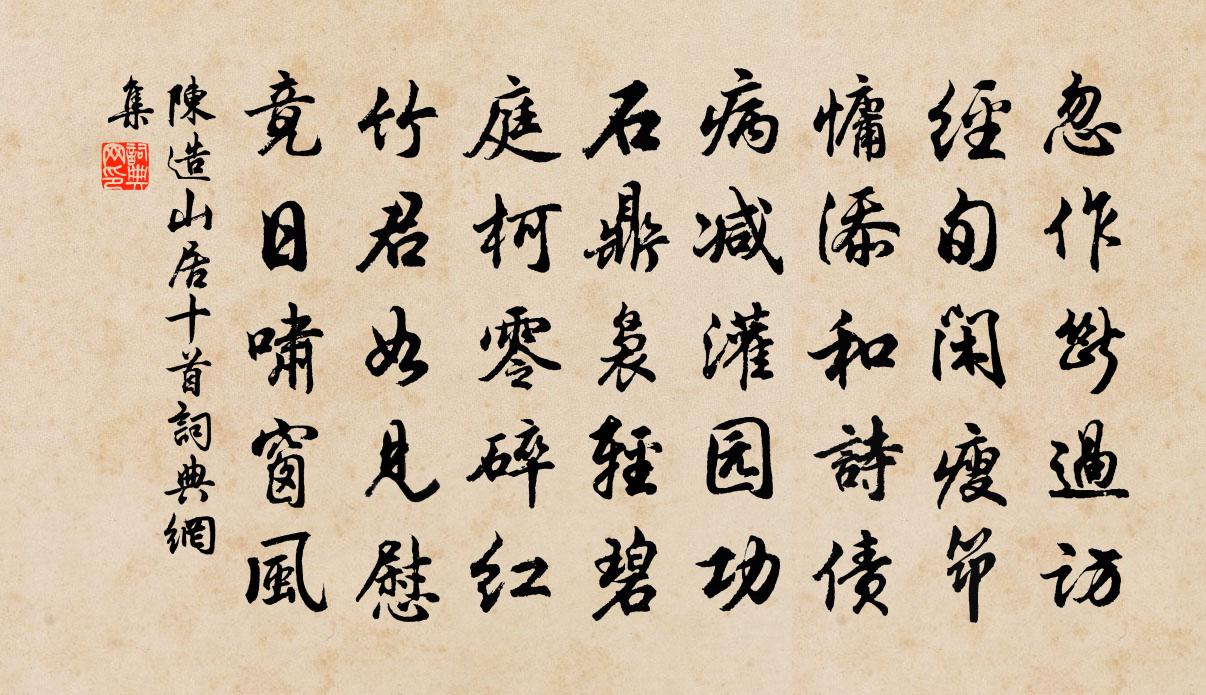 忽作斷過訪
經旬閑瘦筇
慵添和詩債
病減灌园功
石鼎裊輕碧
庭柯零碎紅
竹君如見慰
竟日嘯窗風
陳造山居十首詞典網
集
詞典網印